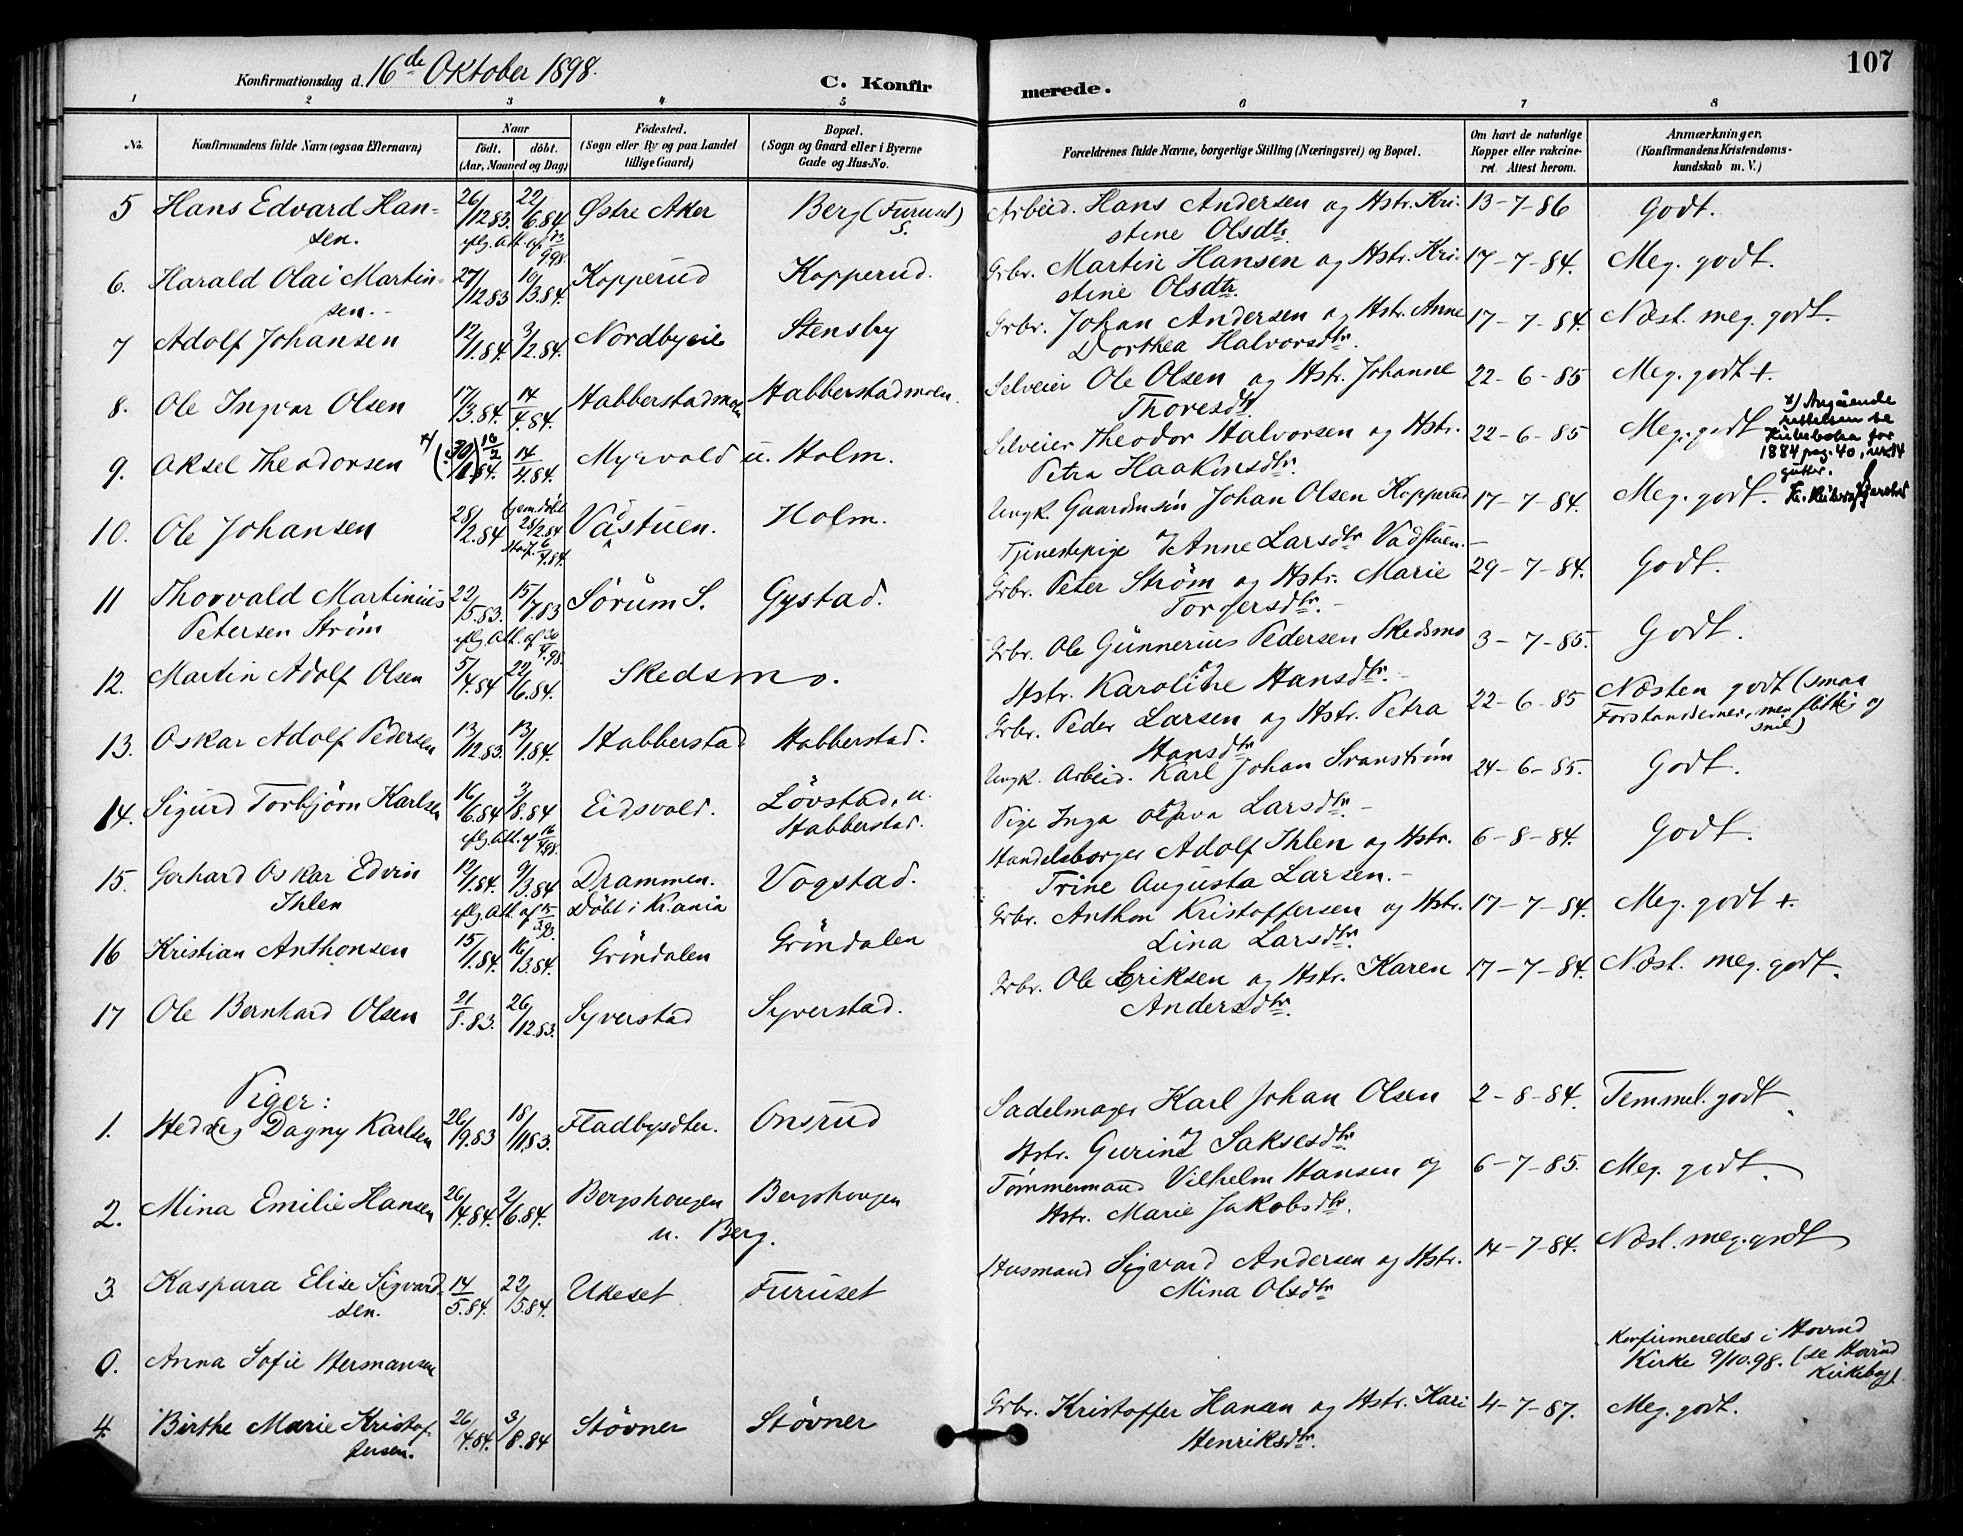 107
Konfirmationsdag d. 16de Oktober 1898.
C. Konfirmerede.
1 2 3 4 5 6 7 8
No. Konfirmandens fulde Navn (ogsaa Efternavn) Naar født. døbt. (Aar, Maaned og Dag) Fødested. (Sogn eller By og paa Landet tillige Gaard) Bopæl. (Sogn og Gaard eller i Byerne Gade og Hus-No. Forældrenes fulde Navne, borgerlige Stilling (Næringsvei) og Bopæl. Om havt de naturlige Kopper eller vakcineret. Attest herom. Anmærkninger. (Konfirmandens Kristendomskundskab m. V.)
5 Hans Edvard Han- 26/12.83. 22/6.84 Østre Aker Berg (Furuset S. Arbeid. Hans Andersen og Hstr. Kri- 13-7-86 Godt.
sen. eflg. Att. af 9.98. stine Olsdtr.
6. Harald Olai Martin- 27/12.83 10/3.84. Kopperud Kopperud. Grbr. Martin Hansen og Hstr. Kri- 17-7-84. Meg. godt.
sen. stine Olsdtr.
7 Adolf Johansen 12/1.84. 3/2.84. Nordbyeie Stensby Grbr. Johan Andersen og Hstr. Anne 17-7-84. Næst. meg. godt.
Dorthea Halvorsdtr.
8. Ole Ingvar Olsen 17/3.84. 14/4.84. Habberstadmoen Habberstadmoen. Selveier Ole Olsen og Hstr. Johanne 22-6-85 Meg. godt +.
Thoresdtr
9. Aksel Theodorsen x) (30/1.84.) 16/2 14/4.84. Myrvold u. Holm. Selveier Theodor Halvorsen og Hstr. 22-6-85 Meg. godt x) Angående rettelsen se Kirkeboka for 1884 pag. 40, nr. 14 gutter.
Petra Haakensdtr.
10. Ole Johansen 28/2.84 hjem.døbt 28/2.84 Stadf. 6/4.84. Vadstuen. Holm. Ungk. Gaardmsøn Johan Olsen Kopperud 17-7-84. Meg. godt.
Tjenestepige Anne Larsdtr Vadstuen.
11 Thorvald Martinius 22/5.83. 15/7.83 Sørum S. Gystad. Grbr. Peter Strøm og Hstr. Marie 29-7-84. Godt.
Petersen Strøm eflg. Att. af 30/4.98. Torgersdtr.
12. Martin Adolf Olsen 5/4.84 22/6.84. Skedsmo. Grbr. Ole Gunnerius Pedersen Skedsmo 3-7-85. Godt.
Hstr. Karoline Hansdtr.
13. Oskar Adolf Pedersen 13/12.83. 13/1.84. Habberstad Habberstad. Grbr. Peder Larsen og Hstr. Petra 22-6-85 Næsten godt (smaa Forstandsevner, men flittig og snil)
Hansdtr
14. Sigurd Torbjørn Karlsen 16/6.84 3/8.84 Eidsvold. Løvstad, u. Habberstad. Ungk. Arbeid. Karl Johan Svanstrøm 24-6-85. Godt.
eflg. Att. af 16/4.98. Pige Inga Olava Larsdtr.
15. Gerhard Oskar Edvin 12/1.84. 9/3.84 Drammen. Vogstad. Handelsborger Adolf Ihlen og Hstr. 6-8-84. Godt.
Ihlen eflg. Att. af Døbt i Kr.ania Trine Augusta Larsen.
16 Kristian Anthonsen 15/1.84. 16/3.84. Grøndalen Grøndalen Grbr. Anthon Kristoffersen og Hstr. 17-7-84. Meg. godt +.
Lina Larsdtr.
17 Ole Bernhard Olsen 21/8.83. 26/12.83. Syverstad Syverstad. Grbr. Ole Eriksen og Hstr. Karen 17-7-84. Næst. meg. godt.
Andersdtr.
Piger:
1. Hedvig Dagny Karlsen 26/9.83 18/11.83. Fladbysdter. Onsrud Sadelmager Karl Johan Olsen 2-8-84. Temmel. godt
Hstr. Gurine Saksesdtr
2. Mina Emilie Hansen 26/4.84. 2/6.84. Bergshougen Bergshougen Tømmermand Vilhelm Hansen og 6-7-85. Meg. godt.
u. Berg. Hstr. Marie Jakobsdtr.
3. Kaspara Elise Sigvard- 14/5.84. 22/5.84. Ukeset Furuset Husmand Sigvard Andersen og Hstr. 14-7-84. Næst. meg. godt
sen. Mina Olsdtr
0. Anna Sofie Hermansen Konfirmeredes i Hovind Kirke 9/10.98. (se Hovind Kirkebog)
4. Birthe Marie Kristof- 26/4.84. 3/8.84 Støvner Støvner Grbr. Kristoffer Hansen og Hstr. Kari 4-7-87. Meg. godt.
fersen. Henriksdtr.